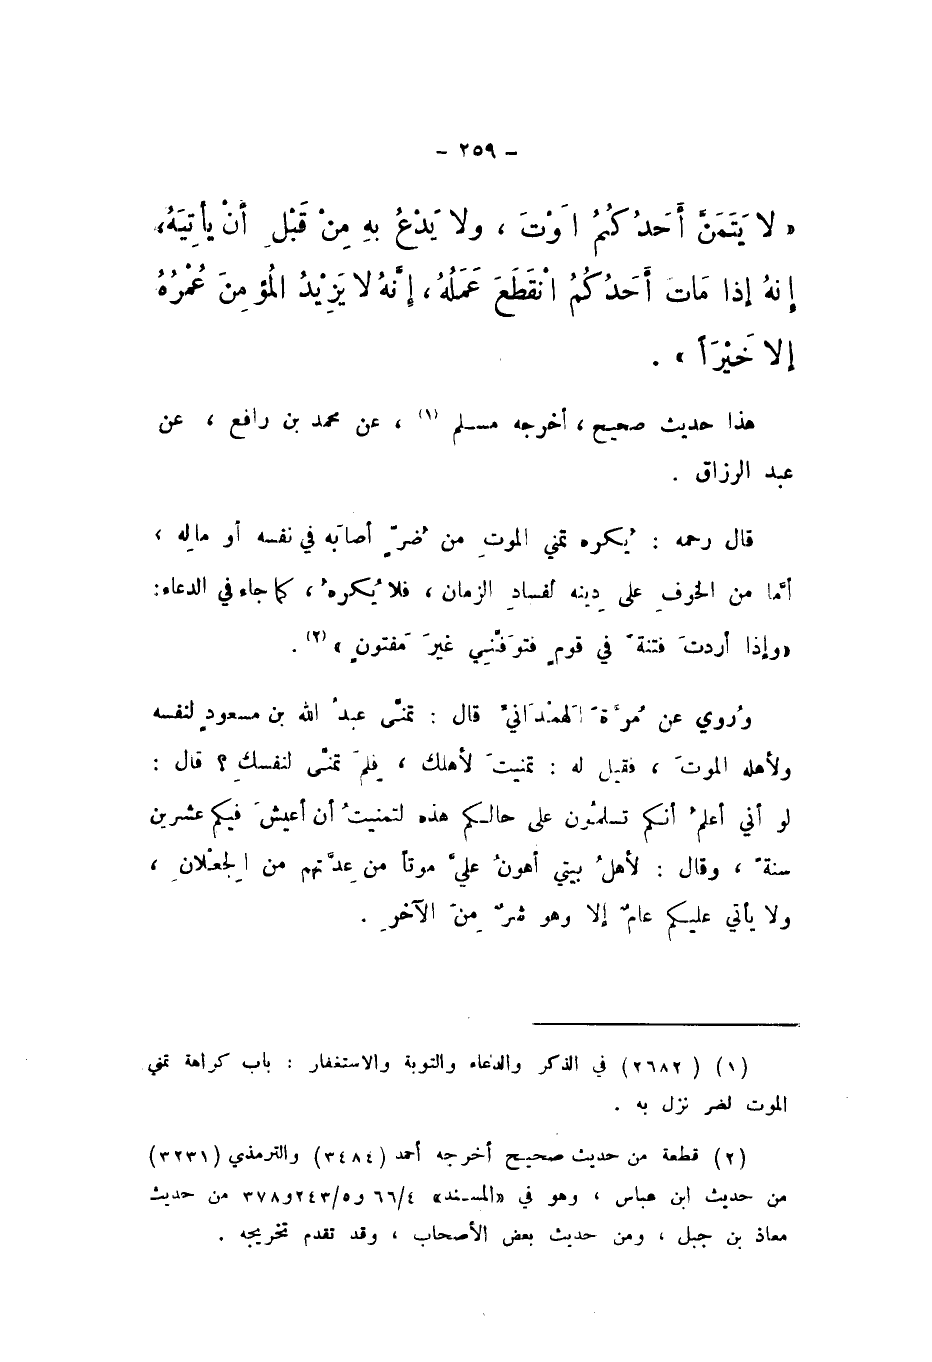 - ٢٥٩ -
« لا يَتَمَنَّ أَحَدُكُمُ اَوْتَ ، ولا يَدْعُ بهِ مِنْ قَبْلِ أَنْ يأتِيَهُ،
إنهُ إذا مَاتَ أَحَدُكُمُ انْقَطَعَ عَمَلُهُ ، إنَّهُ لا يَزِيْدُ المُؤمِنَ عُمْرُهُ
إلا خَيْرَاً » .
هذا حديث صحيح ، أخرجه مسلم (١) ، عن محمد بن رافع ، عن
عبد الرزاق .
قال رحمه : يُكره تمني الموتِ من ضُرٍّ أصابَه في نفسه أو ماله ،
أمَّا من الخوفِ على دِينه لفسادِ الزمان ، فلا يُكرهُ ، كما جاء في الدعاء:
«وإذا أردتَ فتنةً في قومٍ فتوَفَّنِي غيرَ مَفتونٍ » (٢) .
ورُوي عن مُرَّةَ الهَمْدَانيِّ قال : تمنَّى عبدُ الله بن مسعودٍ لنفسه
ولأهله الموتَ ، فقيل له : تمنيتَ لأهلك ، فلِمَ تمنَّى لنفسكِ ؟ قال :
لو أني أعلمُ أنكم تسلمُون على حالكم هذه لتمنيتُ أن أعيشَ فيكم عشرين
سنةً ، وقال : لأهلُ بيتي أهونُ عليَّ موتاً من عِدَّتهم من الجِعْلانِ ،
ولا يأتي عليكم عامٌ إلا وهو شرٌ مِنَ الآخرِ .
(١) (٢٦٨٢) في الذكر والدعاء والتوبة والاستغفار : باب كراهة تمني
الموت لضر نزل به .
(٢) قطعة من حديث صحيح أخرجه أحمد (٣٤٨٤) والترمذي (٣٢٣١)
من حديث ابن عباس ، وهو في «المسند» ٦٦/٤ و٢٤٣/٥و٣٧٨ من حديث
معاذ بن جبل ، ومن حديث بعض الأصحاب ، وقد تقدم تخريجه .